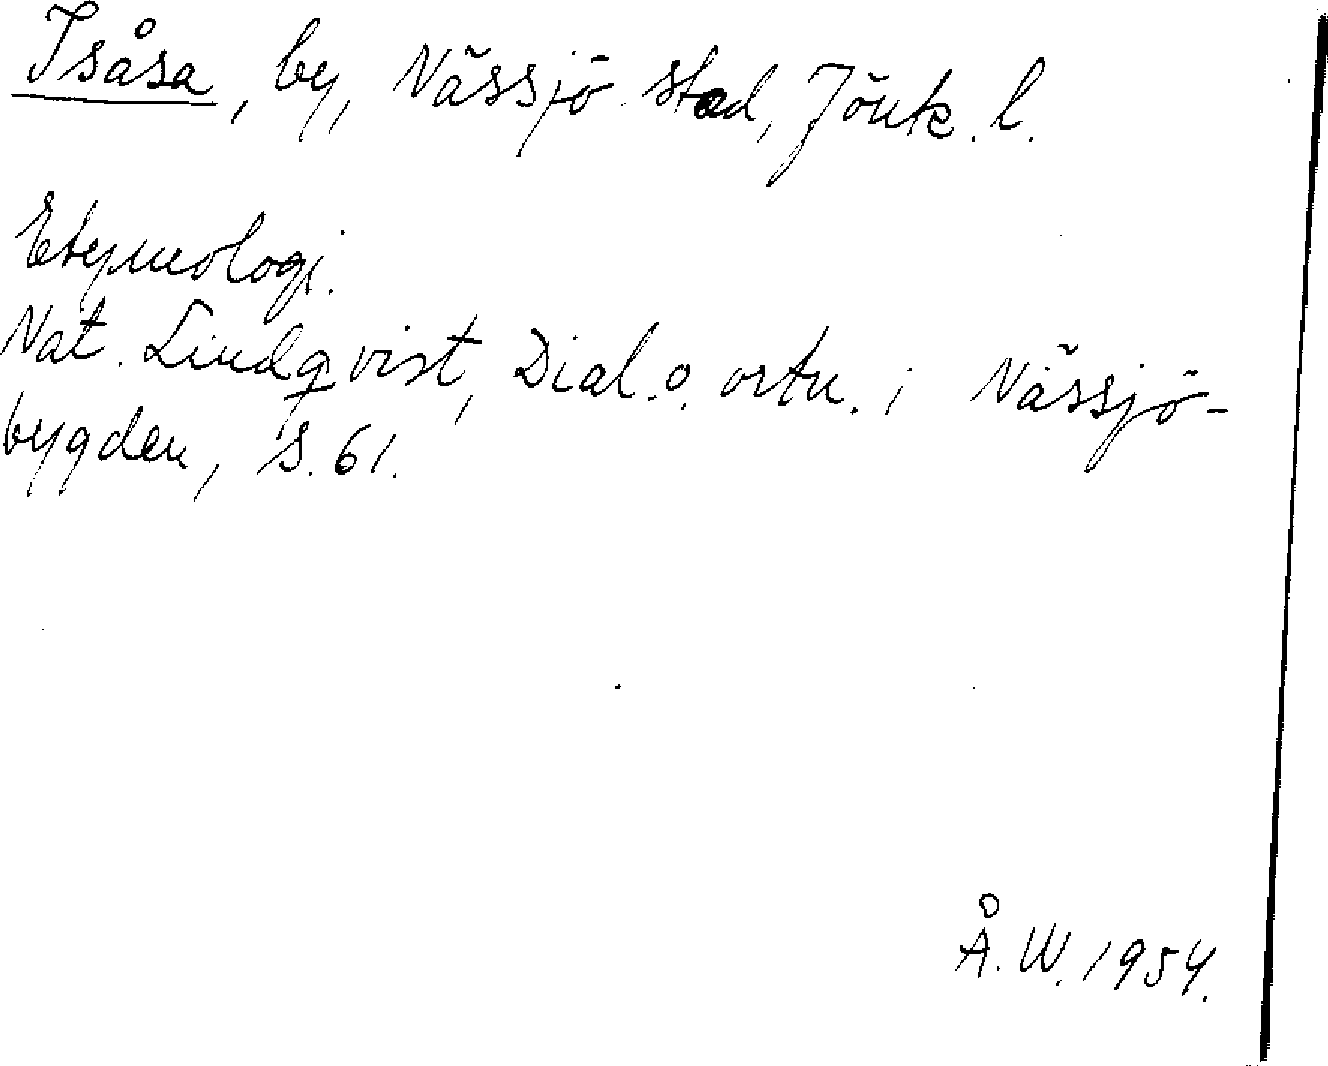 Isåsa, by, Nässjö stad, Jönk. l.
Etymologi.
Nat. Lindqvist, Dial. o. ortn. i Nässjö-
bygden, s. 61.
Å. W. 1954.